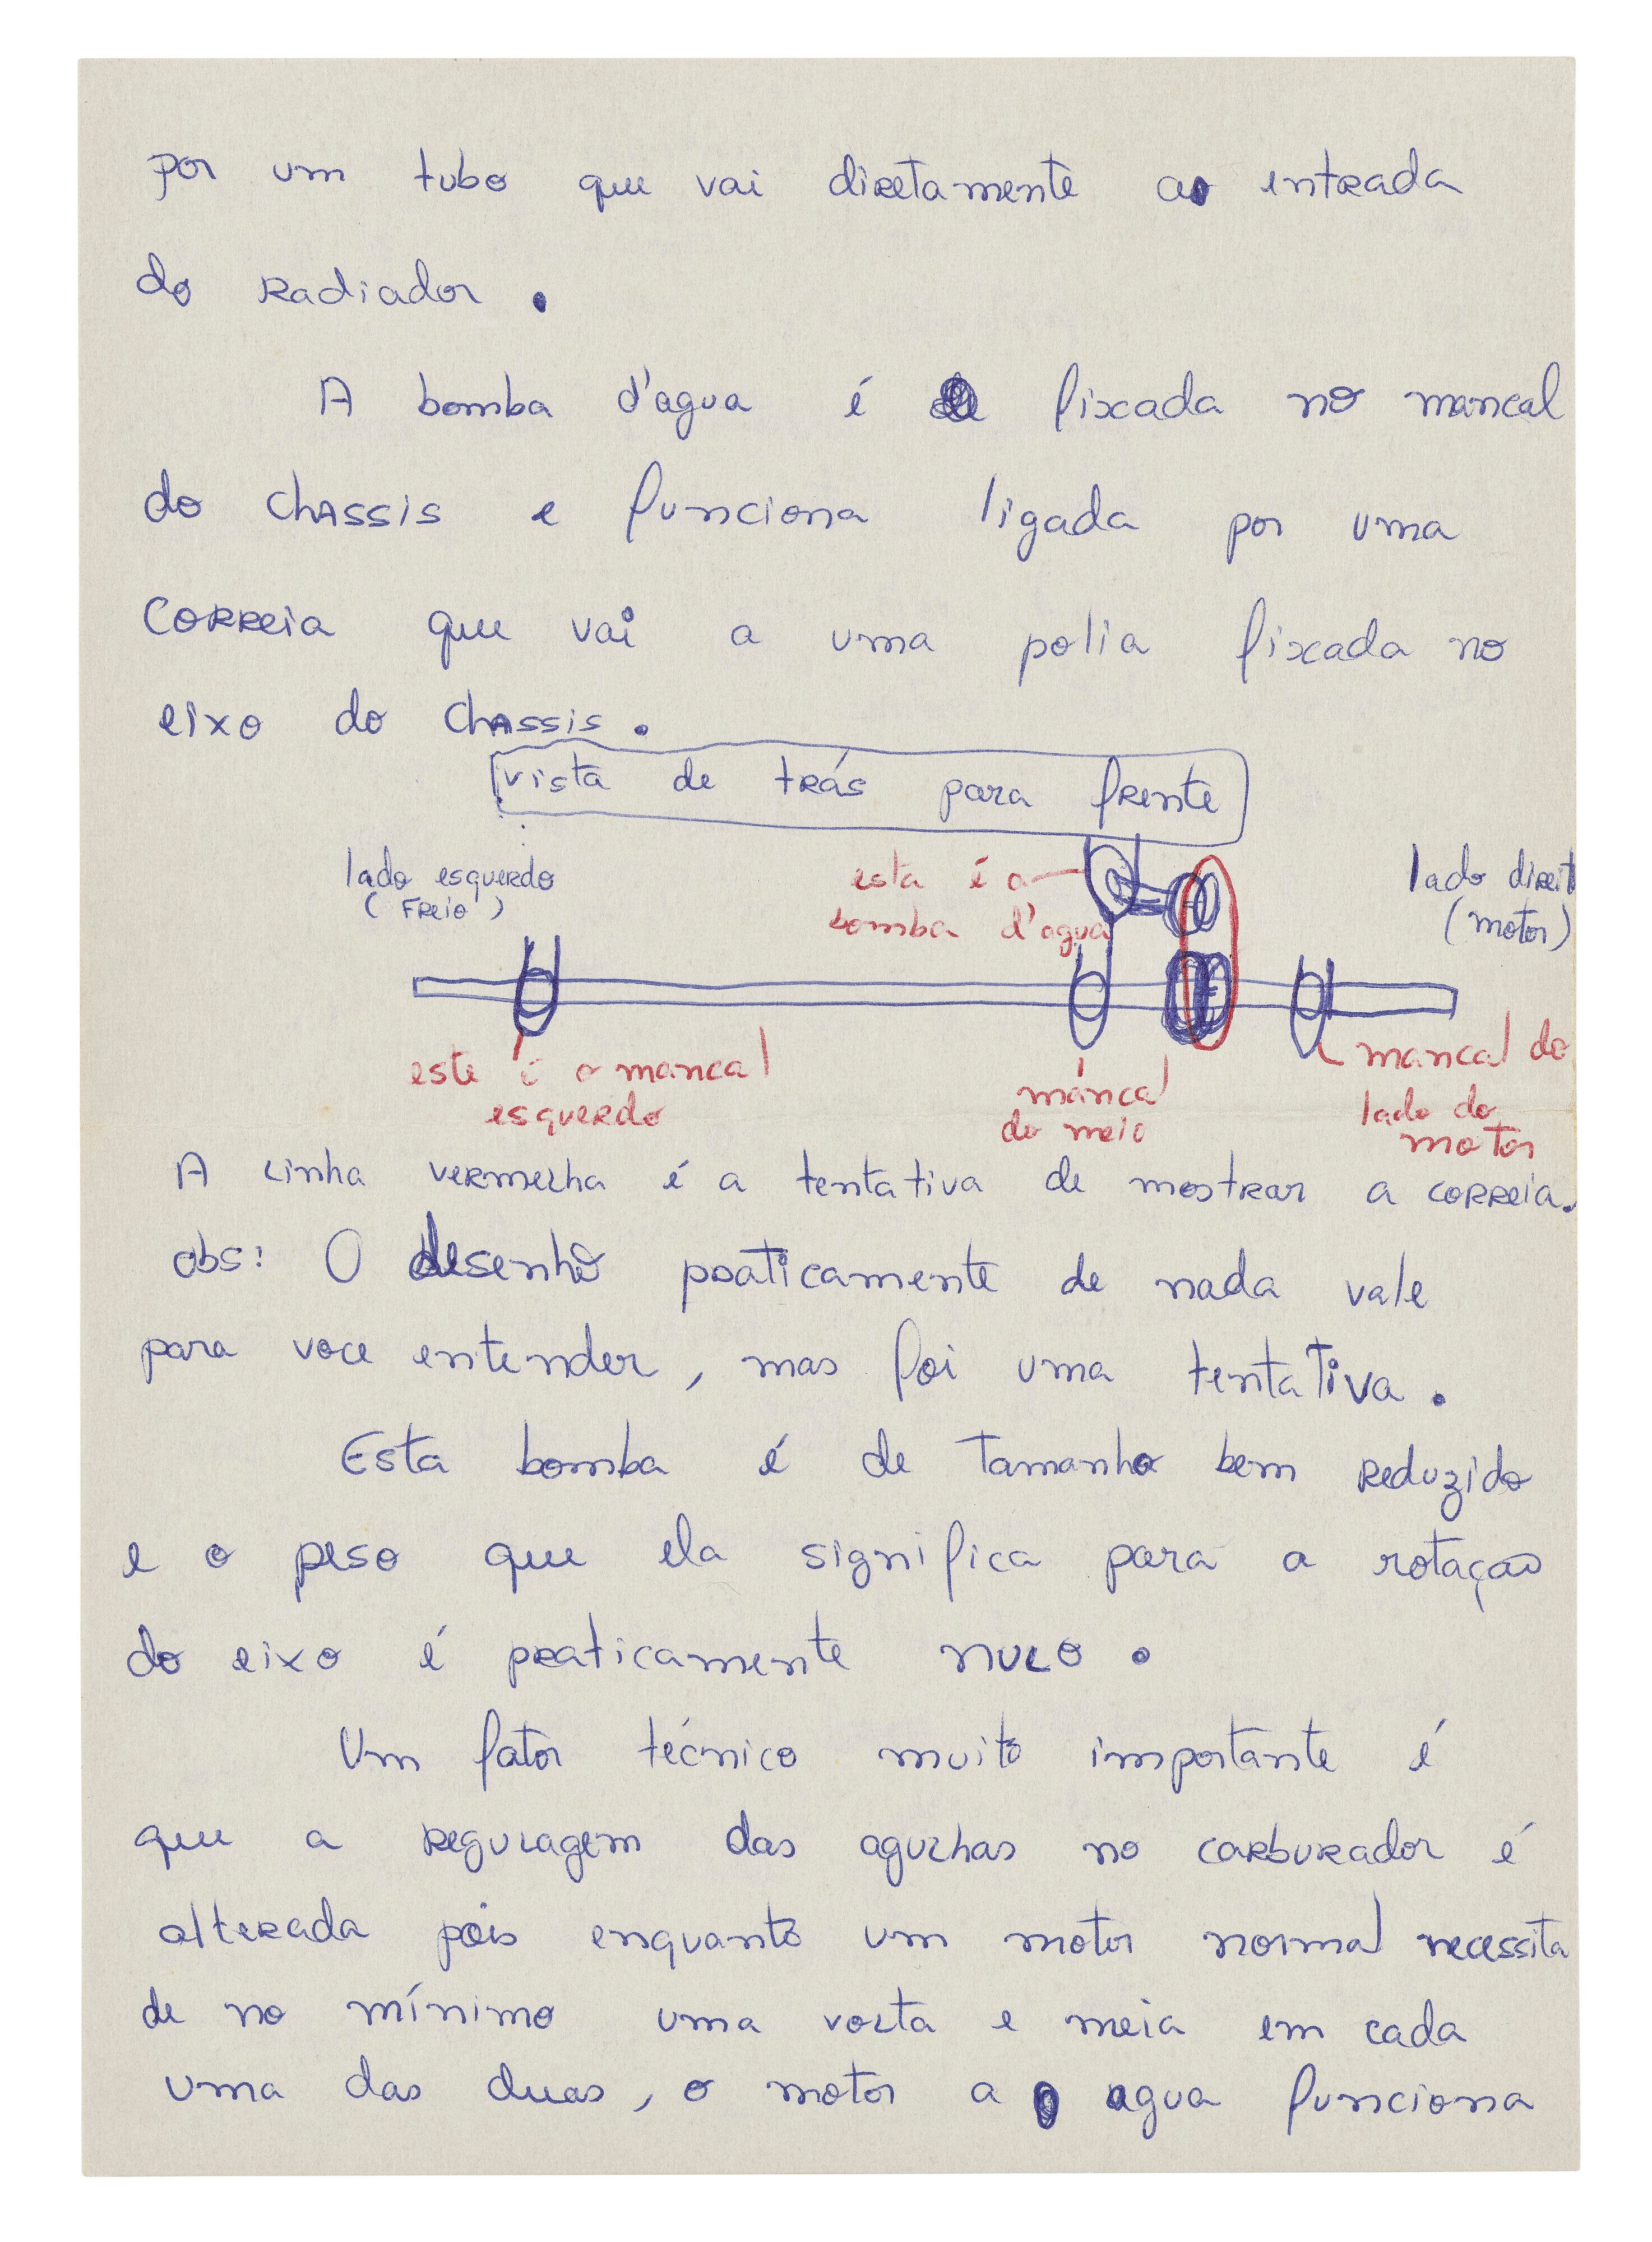 por um tubo que vai diretamente ao entrada
do radiador.
A bomba d'agua é fixada no mancal
do chassis e funciona ligada por uma
correia que vai a uma polia fixada no
eixo do chassis.
vista de trás para frente
lado esquerdo
(FREIO)
esta é a
bomba d'agua
lado direit
(motor)
este é o mancal
esquerdo
mancal
do meio
mancal do
lado do
motor
A linha vermelha é a tentativa de mostrar a correia.
obs: O desenho praticamente de nada vale
para voce entender, mas foi uma tentativa.
Esta bomba é de tamanho bem reduzido
e o peso que ela significa para a rotação
do eixo é praticamente nulo.
Um fator técnico muito importante é
que a regulagem das agulhas no carburador é
alterada pois enquanto um motor normal necessita
de no mínimo uma volta e meia em cada
uma das duas, o motor a agua funciona